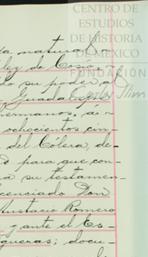 CENTRO DE
ESTUDIOS
DE HISTORIA
DE MEXICO
FUNDACIÓN
Carlos Slim
la natural
ley de Cosio,
do su poder,
Guadalupe
hermanos, ai-
ochocientos cin-
del Cólera, de-
para que con-
su testamen-
cenciado Don
Eustacio Romero
y ante el Es-
gueras; docu-